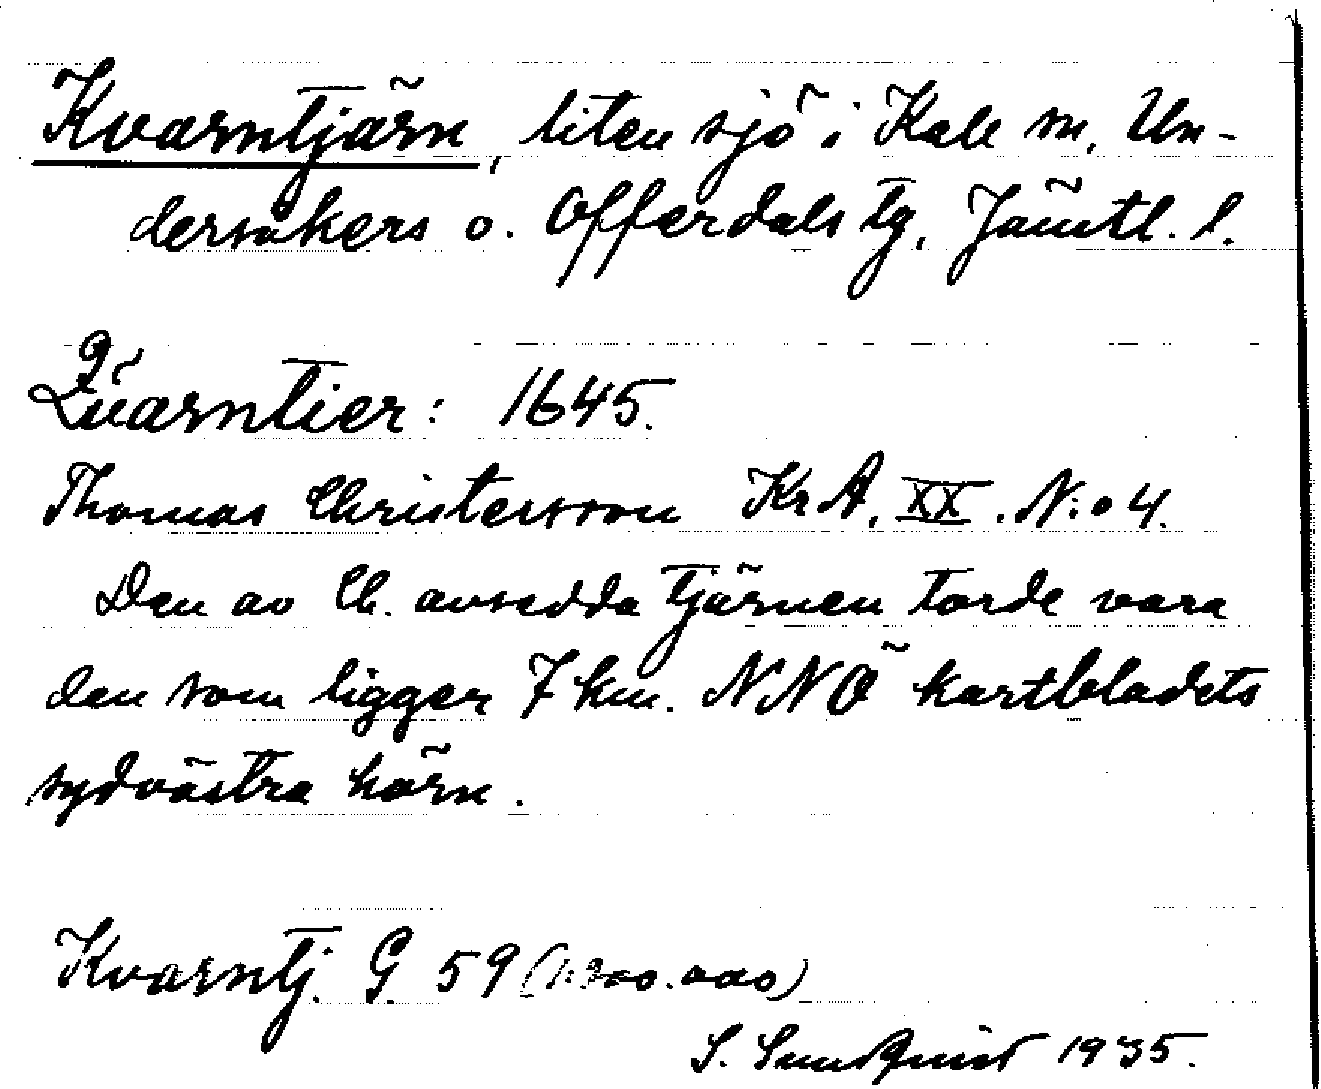 Kvarntjärn, liten sjö i Kall sn, Un-
dersåkers o. Offerdals tg, Jämtl. l.
Quarntier: 1645.
Thomas Christersson KrA, XX. N:o 4.
Den av Ch. avsedda tjärnen torde vara
den som ligger 7 km. NNÖ kartbladets
sydvästra hörn.
Kvarntj. G. 59 (1:200.000)
S. Sundquist 1935.